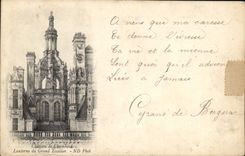 A moins que ma caresse
Te donne l'ivresse
Ta vie et la mienne
Sont quoi qu'il advienne
Liés à jamais
Cyrano de Bergerac
Château de Chambord
Lanterne du Grand Escalier. - ND Phot